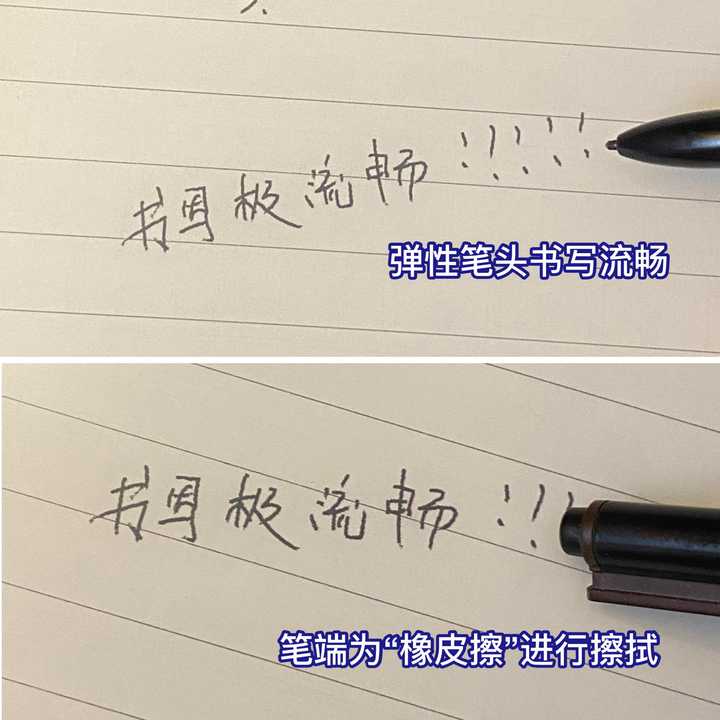 书写极流畅!!!!!
弹性笔头书写流畅
书写极流畅!!!
笔端为“橡皮擦”进行擦拭